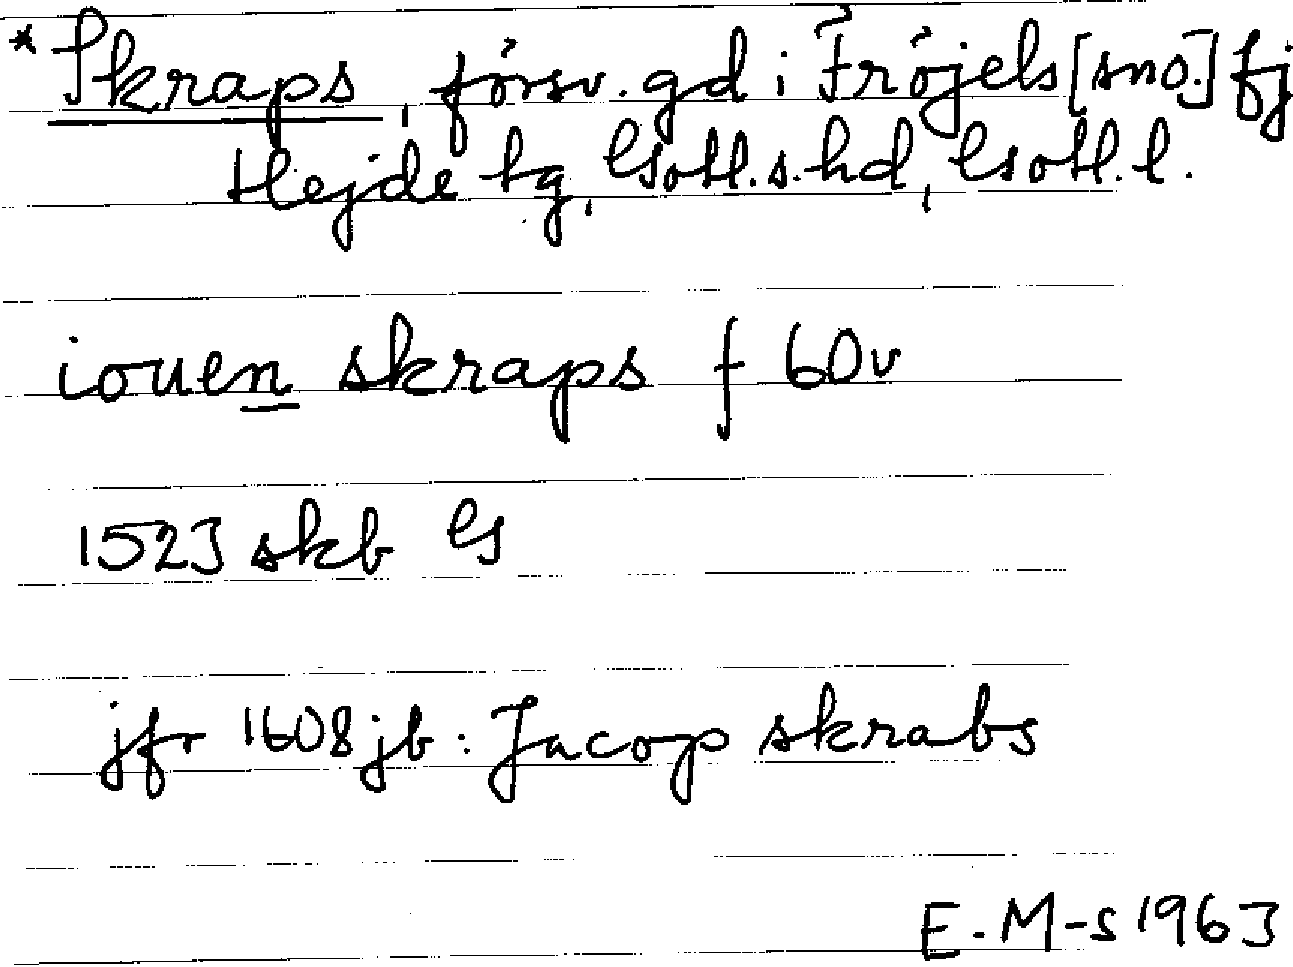 *Skraps, försv. gd i Fröjels [sno.] fj
Hejde tg, Gotl. s. hd, Gotl. l.
iouen skraps f 60v
1523 skb G
jfr 1608 jb: Jacop skrabs
E. M-s 1963